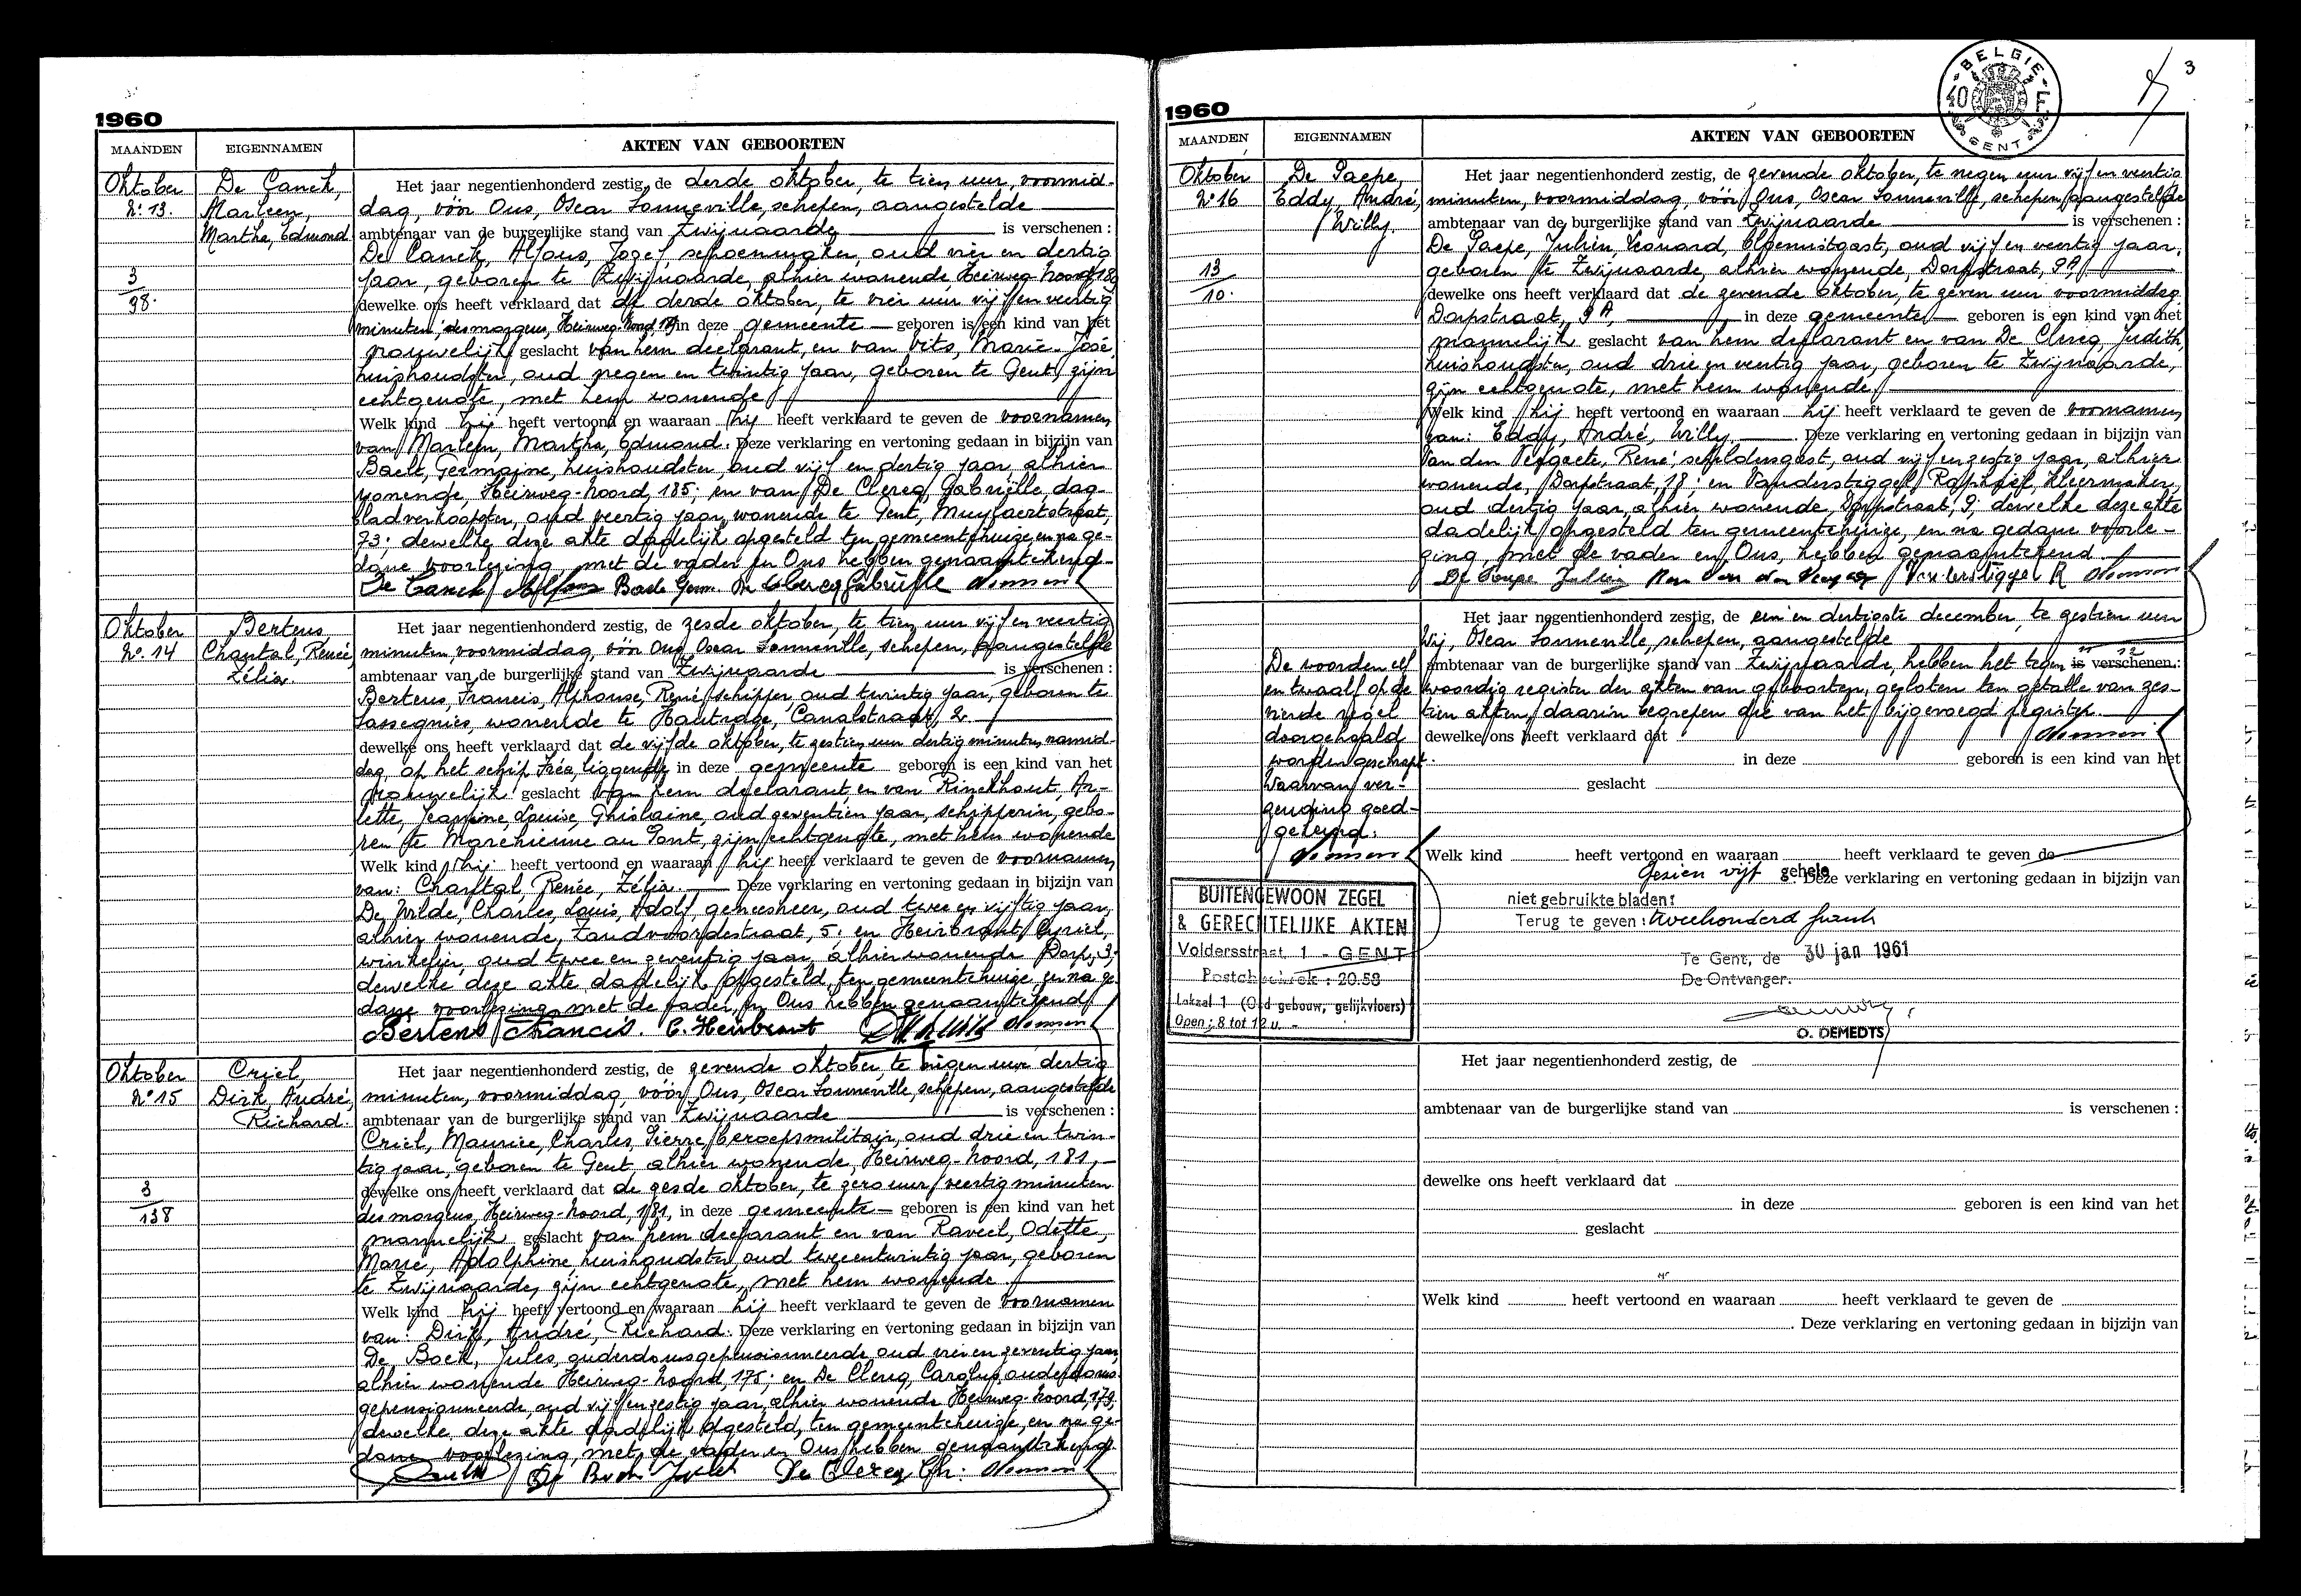 1960
MAANDEN EIGENNAMEN AKTEN VAN GEBOORTEN
Oktober
N° 13.
De Canck,
Marleen,
Martha, Edmond.
3
98.
Het jaar negentienhonderd zestig, de derde oktober, te tien uur, voormid-
dag, vóór Ons, Oscar Sonneville, schepen, aangestelde
ambtenaar van de burgerlijke stand van Zwijnaarde is verschenen :
De Canck, Alfons, Jozef, schoenmaker, oud vier en dertig
jaar, geboren te Zwijnaarde, alhier wonende, Heirweg-Noord, 189
dewelke ons heeft verklaard dat de derde oktober, te vier uur vijf en veertig
minuten, des morgens, Heirweg-Noord, in deze gemeente geboren is een kind van het
vrouwelijk geslacht van hem declarant, en van Vits, Marie-José,
huishoudster, oud negen en twintig jaar, geboren te Gent, zijn
echtgenote, met hem wonende
Welk kind hij heeft vertoond en waaraan hij heeft verklaard te geven de voornamen
van Marleen, Martha, Edmond. Deze verklaring en vertoning gedaan in bijzijn van
Baele, Germaine, huishoudster, oud vijf en dertig jaar, alhier
wonende, Heirweg-Noord, 185; en van De Clercq, Gabriëlle, dag-
bladverkoopster, oud veertig jaar, wonende te Gent, Muylaertstraat,
73; dewelke deze akte dadelijk opgesteld ten gemeentehuize en na ge-
dane voorlezing, met de vader en Ons hebben genaamtekend.
De Canck Alfons Baele Germ. De Clercq Gabriëlle
Oktober
N° 14
Bertens
Chantal, Renée,
Zélia.
Het jaar negentienhonderd zestig, de zesde oktober, te tien uur vijf en veertig
minuten, voormiddag, vóór Ons, Oscar Sonneville, schepen, aangestelde
ambtenaar van de burgerlijke stand van Zwijnaarde is verschenen :
Bertens, Francis, Alphonse, René, schipper, oud twintig jaar, geboren te
Sassegnies, wonende te Hautrage, Canalstraat, 2.
dewelke ons heeft verklaard dat de vijfde oktober, te zestien uur dertig minuten, namid-
dag, op het schip liggende in deze gemeente geboren is een kind van het
vrouwelijk geslacht van hem declarant, en van Rinckhout, Ar-
lette, Jeannine, Louise, Ghislaine, oud zeventien jaar, schipperin, gebo-
ren te Marchienne au Pont, zijn echtgenote, met hem wonende
Welk kind hij heeft vertoond en waaraan hij heeft verklaard te geven de voornamen
van: Chantal, Renée, Zélia. Deze verklaring en vertoning gedaan in bijzijn van
De Wilde, Charles, Louis, Adolf, geneesheer, oud twee en vijftig jaar,
alhier wonende, Zandvoordestraat, 5; en Heirbrant, Cyriel,
winkelier, oud twee en zeventig jaar, alhier wonende Dorp, 3;
dewelke deze akte dadelijk opgesteld, ten gemeentehuize, en na ge-
dane voorlezing, met de vader, en Ons hebben genaamtekend
Bertens Francis. C. Heirbrant
Oktober
N° 15
Criel,
Dirk, André,
Richard.
3
138
Het jaar negentienhonderd zestig, de zevende oktober, te negen uur dertig
minuten, voormiddag, vóór Ons, Oscar Sonneville, schepen, aangestelde
ambtenaar van de burgerlijke stand van Zwijnaarde is verschenen :
Criel, Maurice, Charles, Pierre, beroepsmilitair, oud drie en twin-
tig jaar, geboren te Gent, alhier wonende, Heirweg-Noord, 181,
dewelke ons heeft verklaard dat de zesde oktober, te zero uur veertig minuten
des morgens, Heirweg-Noord, 181, in deze gemeente geboren is een kind van het
mannelijk geslacht van hem declarant en van Raveel, Odette,
Marie, Adolphine, huishoudster, oud tweeentwintig jaar, geboren
te Zwijnaarde, zijn echtgenote, met hem wonende.
Welk kind hij heeft vertoond en waaraan hij heeft verklaard te geven de voornamen
van: Dirk, André, Richard. Deze verklaring en vertoning gedaan in bijzijn van
De Bock, Jules, ouderdomsgepensioneerde, oud vier en zeventig jaar,
alhier wonende Heirweg-Noord, 175; en De Clercq, Carolus, ouderdoms-
gepensioneerde, oud vijf en zestig jaar, alhier wonende Heirweg-Noord, 179,
dewelke deze akte dadelijk opgesteld, ten gemeentehuize, en na ge-
dane voorlezing, met de vader en Ons hebben genaamtekend.
De Bock Jules De Clercq Ch.
3
BELGIE
40 F
GENT
1960
MAANDEN EIGENNAMEN AKTEN VAN GEBOORTEN
Oktober
N° 16
De Paepe,
Eddy, André,
Willy
13
10.
Het jaar negentienhonderd zestig, de zevende oktober, te negen uur vijf en veertig
minuten, voormiddag, vóór Ons, Oscar Sonneville, schepen, aangestelde
ambtenaar van de burgerlijke stand van Zwijnaarde is verschenen :
De Paepe, Julien, Leonard, oud vijf en veertig jaar,
geboren te Zwijnaarde, alhier wonende, Dorpstraat, 9A,
dewelke ons heeft verklaard dat de zevende oktober, te zeven uur voormiddag
Dorpstraat, 9A, in deze gemeente geboren is een kind van het
mannelijk geslacht van hem declarant en van De Clercq, Judith,
huishoudster, oud drie en veertig jaar, geboren te Zwijnaarde,
zijn echtgenote, met hem wonende
Welk kind hij heeft vertoond en waaraan hij heeft verklaard te geven de voornamen
van: Eddy, André, Willy. Deze verklaring en vertoning gedaan in bijzijn van
Van den Veegaete, René, schildersgast, oud vijf en zestig jaar, alhier
wonende, Dorpstraat, 18; en Vanderstiggel, Raphaël, kleermaker,
oud dertig jaar, alhier wonende, Dorpstraat, 9; dewelke deze akte
dadelijk opgesteld ten gemeentehuize, en na gedane voorle-
zing, met de vader en Ons, hebben genaamtekend.
De Paepe Julien Vanderstiggel R
Het jaar negentienhonderd zestig, de een en dertigste december, te zestien uur
Wij, Oscar Sonneville, schepen, aangestelde
11 12
ambtenaar van de burgerlijke stand van Zwijnaarde, hebben het tegen is verschenen :
woordig register der akten van geboorten, gesloten ten getalle van zes-
tien akten, daarin begrepen die van het bijgevoegd register.
dewelke ons heeft verklaard dat
in deze geboren is een kind van het
geslacht
De woorden elf
en twaalf op de
vierde regel
doorgehaald
worden geschrapt.
Waarvan ver-
zending goed-
gekeurd.
Welk kind heeft vertoond en waaraan heeft verklaard te geven de
Gezien vijf gehele
. Deze verklaring en vertoning gedaan in bijzijn van
niet gebruikte bladen:
Terug te geven : tweehonderd frank
Te Gent, de 30 jan 1961
De Ontvanger.
O. DEMEDTS
BUITENGEWOON ZEGEL
& GERECHTELIJKE AKTEN
Voldersstraat, 1 - GENT
Postcheckrek : 20.58
Lokaal 1 (Oud gebouw, gelijkvloers)
Open : 8 tot 12 u. -
Het jaar negentienhonderd zestig, de
ambtenaar van de burgerlijke stand van is verschenen :
dewelke ons heeft verklaard dat
in deze geboren is een kind van het
geslacht
Welk kind heeft vertoond en waaraan heeft verklaard te geven de
. Deze verklaring en vertoning gedaan in bijzijn van